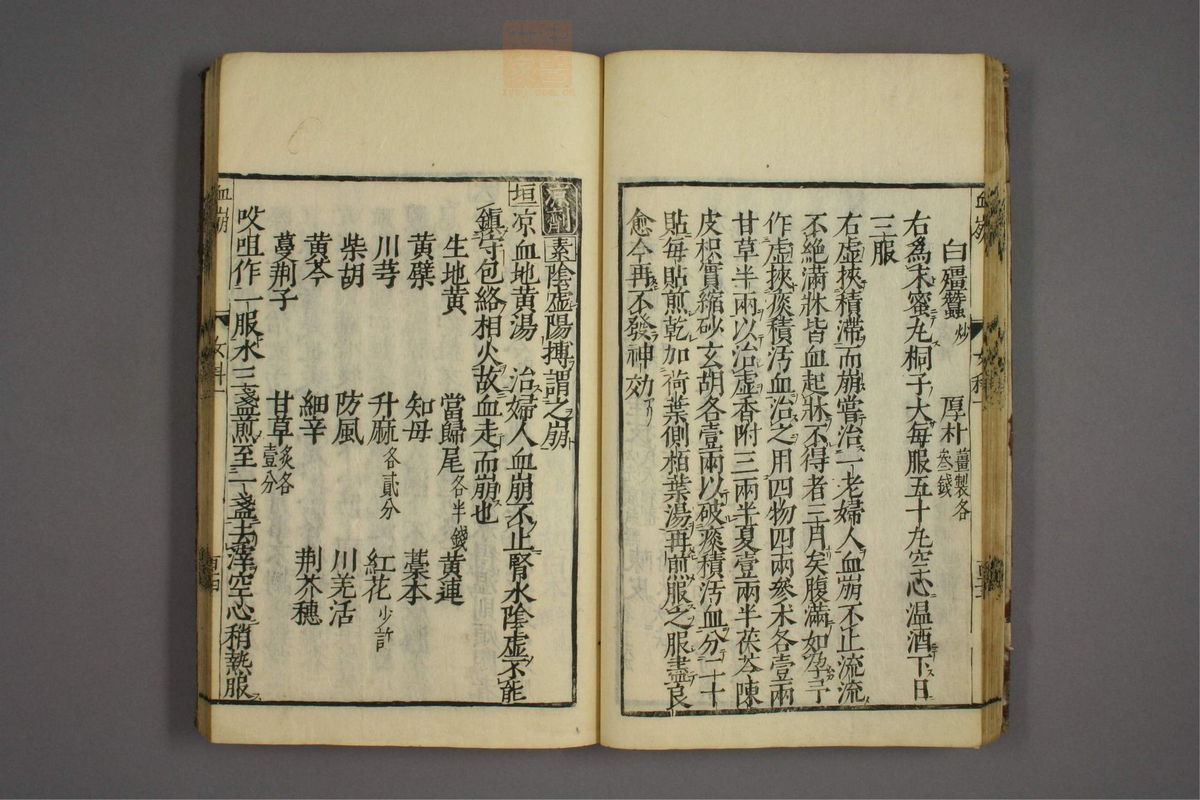 血崩
女科
白殭蠶炒 厚朴薑製各叁錢
右為末蜜丸桐子大每服五十丸空心温酒下日
三服
右虚挾積滯而崩嘗治一老婦人血崩不止流流
不絶滿牀皆血起牀不得者三月矣腹滿如孕予
作虚挾痰積汚血治之用四物四兩參术各壹兩
甘草半兩以治虚香附三兩半夏壹兩半茯苓陳
皮枳實縮砂玄胡各壹兩以破痰積汚血分二十
貼每貼煎乾加荷葉側栢葉湯再煎服之服盡良
愈今再不發神効
素陰虚陽搏謂之崩
垣凉血地黄湯 治婦人血崩不止腎水陰虚不能
鎮守包絡相火故血走而崩也
生地黄 當歸尾各半錢 黄連
黄檗 知母 藁本
川芎 升麻各貳分 紅花少許
柴胡 防風 川羌活
黄芩 細辛 荆芥穗
蔓荆子 甘草炙各壹分
㕮咀作一服水三盞煎至一盞去滓空心稍熱服
血崩
女科